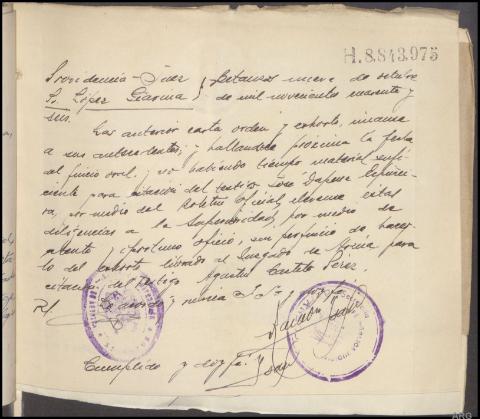 H.8.843.975
Providencia = Juez } Betanzos nueve de octubre
Sr. López Giasma } de mil novecientos cuarenta y
seis.
Las anterior carta orden y exhorto, únanse
a sus antecedentes; y hallandose próxima la fecha
del juicio oral, y no habiendo tiempo material sufi-
ciente para citacion del testigo José Dapena
por medio del Boletin Oficial, elevense estas
diligencias a la Superioridad, por medio de
atento y oportuno oficio, sin perjuicio de
lo del exhorto librado al Juzgado de para
citacion del testigo Agustin Castelo Pérez.
Lo acordó y rubrica S. Sª y doy fe
Cumplido y doy fe.